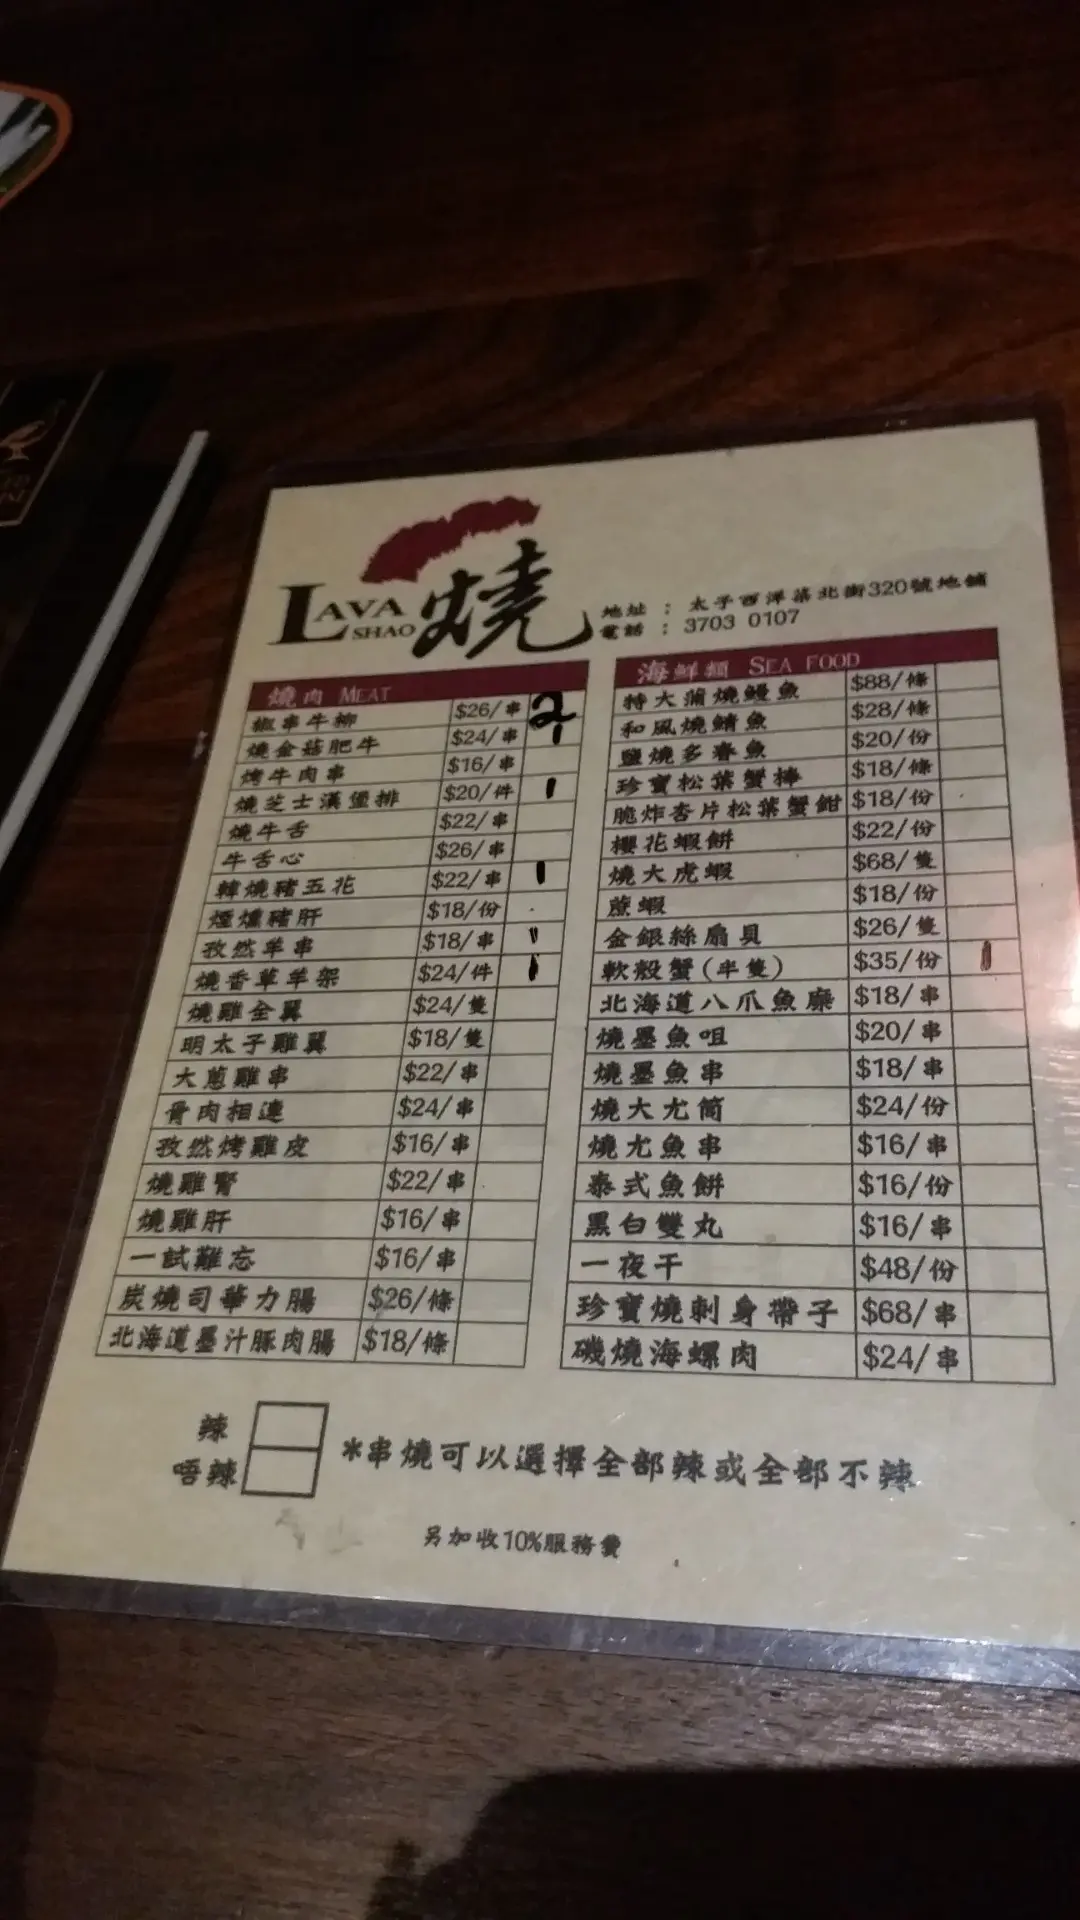 LAVA
SHAO
燒
地址 : 太子西洋菜北街320號地舖
電話 : 3703 0107
燒肉 MEAT
椒串牛柳 $26/串 2
燒金菇肥牛 $24/串 1
烤牛肉串 $16/串
燒芝士漢堡排 $20/件 1
燒牛舌 $22/串
牛舌心 $26/串
韓燒豬五花 $22/串 1
煙燻豬肝 $18/份
孜然羊串 $18/串 11
燒香草羊架 $24/件 1
燒雞全翼 $24/隻
明太子雞翼 $18/隻
大蔥雞串 $22/串
骨肉相連 $24/串
孜然烤雞皮 $16/串
燒雞腎 $22/串
燒雞肝 $16/串
一試難忘 $16/串
炭燒司華力腸 $26/條
北海道墨汁豚肉腸 $18/條
海鮮類 SEA FOOD
特大蒲燒鰻魚 $88/條
和風燒鯖魚 $28/條
鹽燒多春魚 $20/份
珍寶松葉蟹棒 $18/條
脆炸杏片松葉蟹鉗 $18/份
櫻花蝦餅 $22/份
燒大虎蝦 $68/隻
蔗蝦 $18/份
金銀絲扇貝 $26/隻
軟殼蟹(半隻) $35/份 1
北海道八爪魚 $18/串
燒墨魚咀 $20/串
燒墨魚串 $18/串
燒大尤筒 $24/份
燒尤魚串 $16/串
泰式魚餅 $16/份
黑白雙丸 $16/串
一夜干 $48/份
珍寶燒刺身帶子 $68/串
磯燒海螺肉 $24/串
辣
唔辣
*串燒可以選擇全部辣或全部不辣
另加收10%服務費